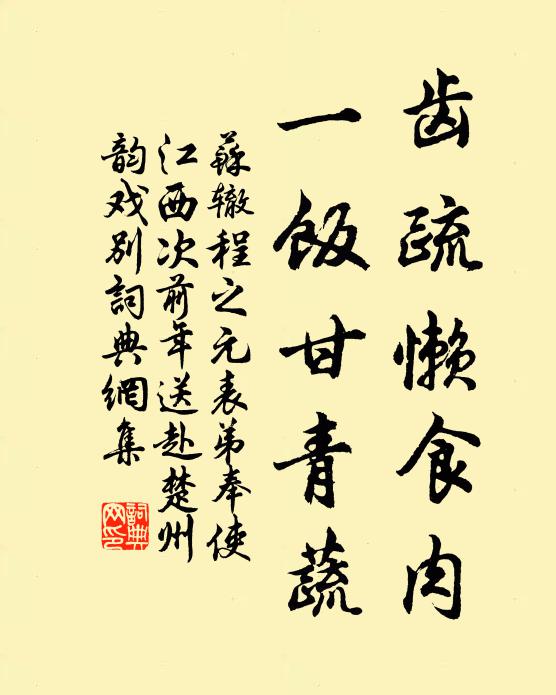 齿疏懒食肉
一饭甘青蔬
蘇辙程之元表弟奉使
江西次前年送赴楚州
韵戏别詞典網集
詞典
网印